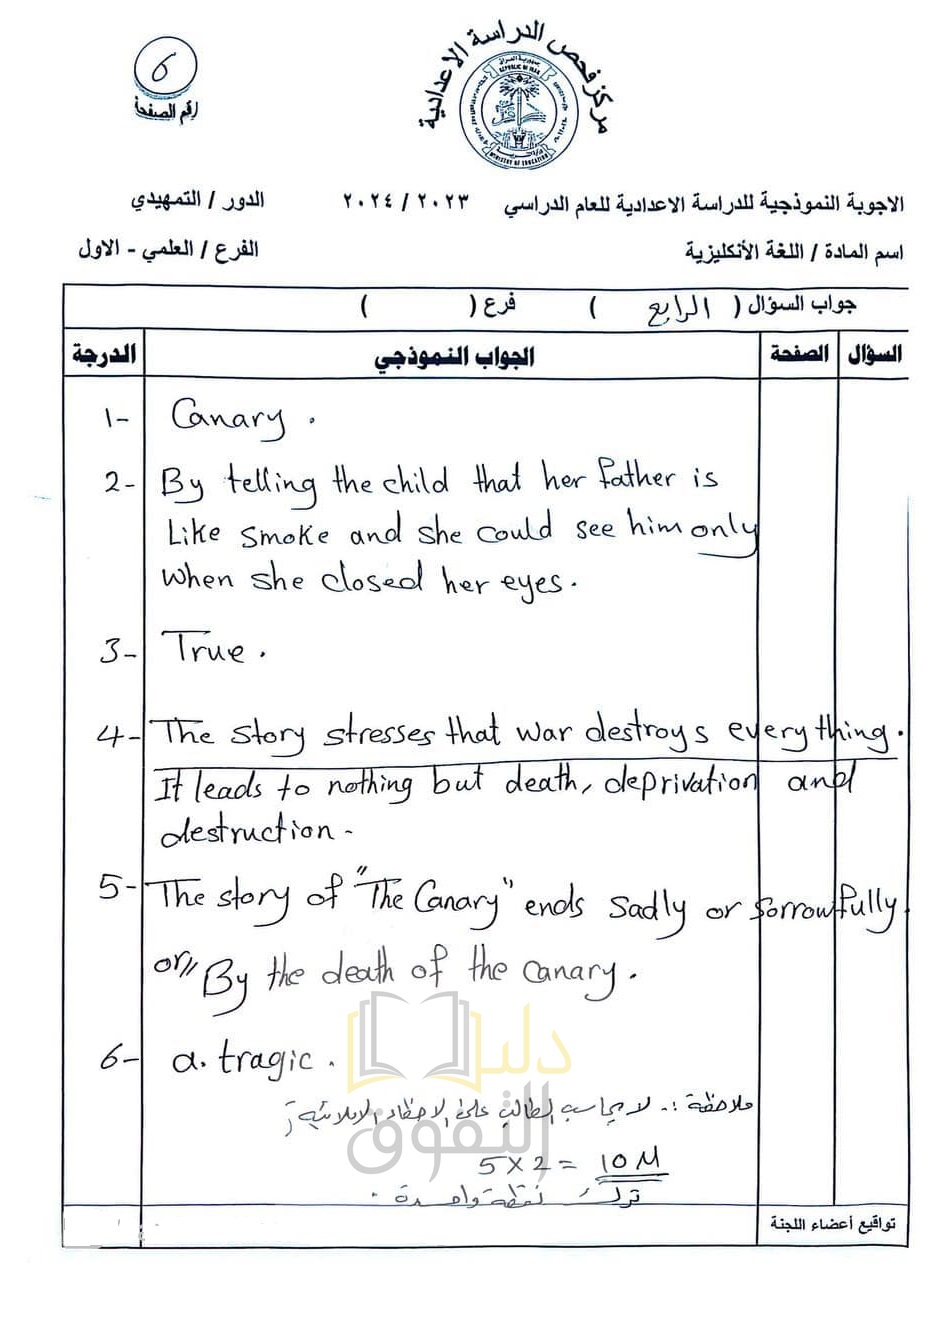 6
رقم الصفحة
مركز فحص الدراسة الاعدادية
جمهورية العراق
REPUBLIC OF IRAQ
MINISTRY OF EDUCATION
الاجوبة النموذجية للدراسة الاعدادية للعام الدراسي ٢٠٢٣ / ٢٠٢٤ الدور / التمهيدي
اسم المادة / اللغة الأنكليزية الفرع / العلمي - الاول
جواب السؤال ( الرابع ) فرع ( )
السؤال الصفحة الجواب النموذجي الدرجة
1- Canary .
2- By telling the child that her father is
Like smoke and she could see him only
when she closed her eyes.
3- True .
4- The story stresses that war destroys everything.
It leads to nothing but death, deprivation and
destruction.
5- The story of "The Canary" ends sadly or sorrowfully.
or// By the death of the canary.
6- a. tragic .
دليل
التفوق
ملاحظة :. لا يحاسب الطالب على الاخطاء الاملائية
5 X 2 = 10 M
ترك نقطة واحدة .
تواقيع أعضاء اللجنة